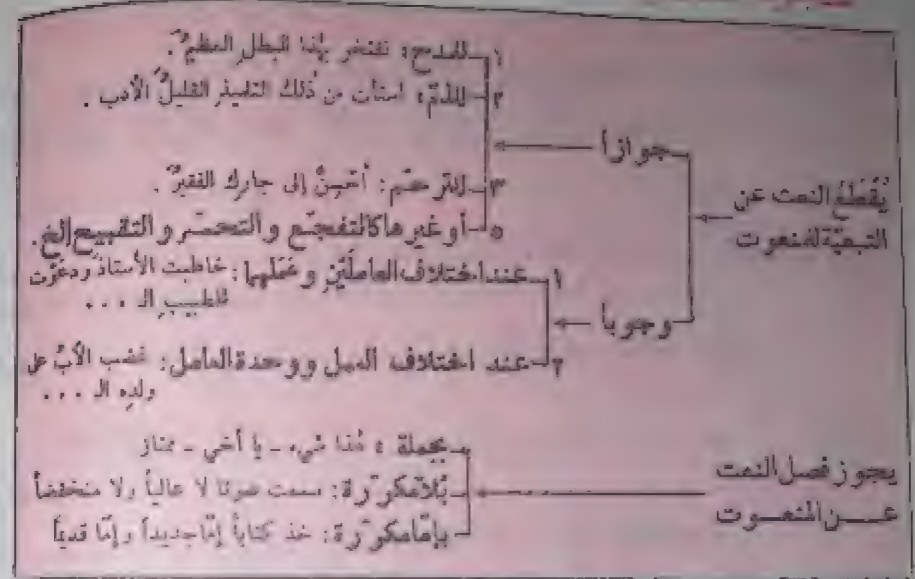 يُقْطَعُ النعت عن
التبعيّة لمنعوت
جوازاً
١- للمدح: نفتخر بهذا البطل العظيمُ.
٢- للذمّ: استأت من ذٰلك التلميذِ القليلُ الأدب.
٣- للترحّم: أَحْسِنْ إلى جارك الفقيرُ.
٥- أو غيرها كالتفجّع والتحسّر والتقبيح إلخ.
وجوباً
١- عند اختلاف العاملَيْن وعَمَلهما: خاطبت الأستاذَ ودعَوْت
للطبيبِ الـ ...
٢- عند اختلاف العمل ووحدة العامل: غضب الأبُ على
ولدِه الـ ...
يجوز فصل النعت
عـن المنعــوت
بجملة: هٰذا شيء - يا أخي - ممتاز
بلا مكرّرة: سمعت صوتا لا عالياً ولا منخفضاً
بإمّا مكرّرة: خذ كتاباً إمّا جديداً وإمّا قديماً